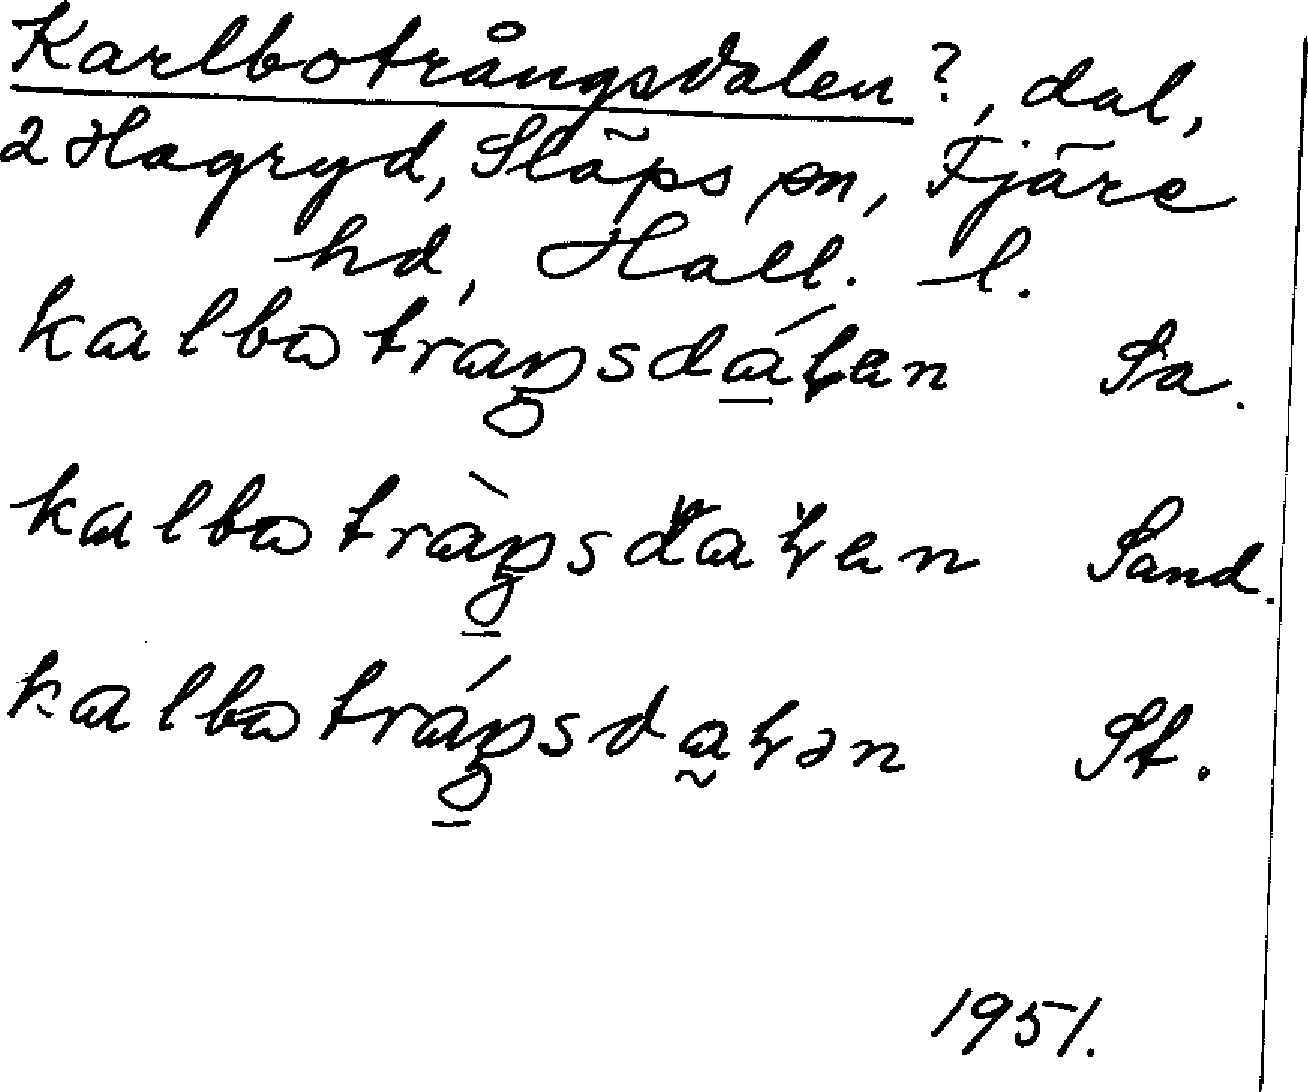 Karlbotrångsdalen?, dal,
2 Hagryd, Släps sn, Fjäre
hd, Hall. l.
kalbotraŋsdáɫen Sa.
kalbotràŋsdaɫen Sand.
kalbotráŋsdaɫən St.
1951.